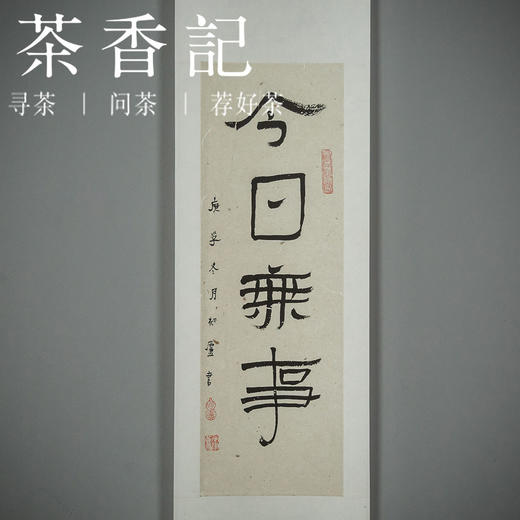 茶香記
寻茶 | 问茶 | 荐好茶
今日無事
庚子冬月